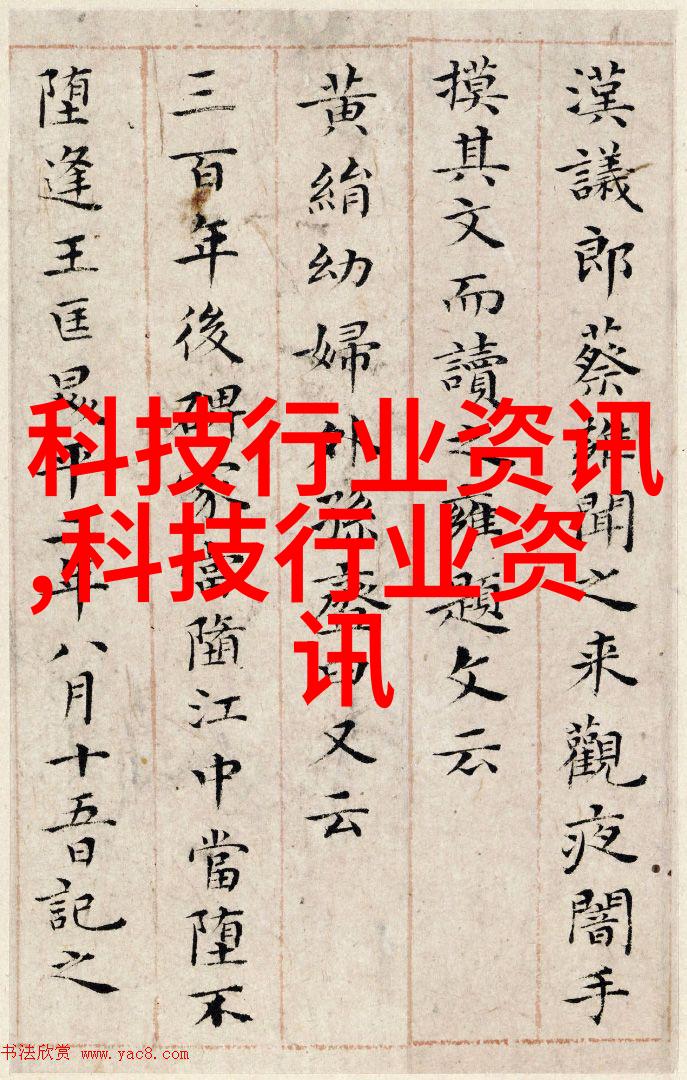 漢議郎蔡聞之来觀夜闇手
摸其文而讀之雍題文云
黄絹幼婦外孫又云
三百年後碑冢當墮江中當堕不
堕逢王匡昇平二年八月十五日記之
科技行业资讯
,科技行业资
讯
书法欣赏 www.yac8.com